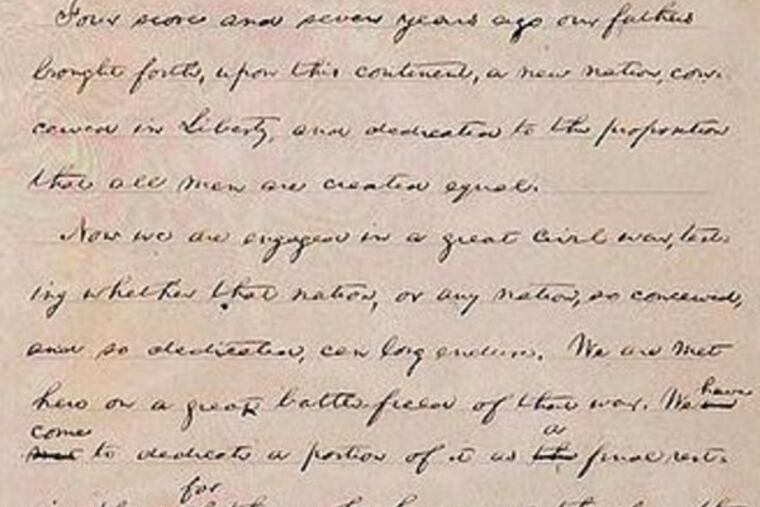 Four score and seven years ago our fathers
brought forth, upon this continent, a new nation, con-
ceived in Liberty, and dedicated to the proposition
that all men are created equal.
Now we are engaged in a great civil war, test-
ing whether that nation, or any nation, so conceived,
and so dedicated, can long endure. We are met
here on a great battlefield of that war. We
have
come a
to dedicate a portion of it as the final rest-
for